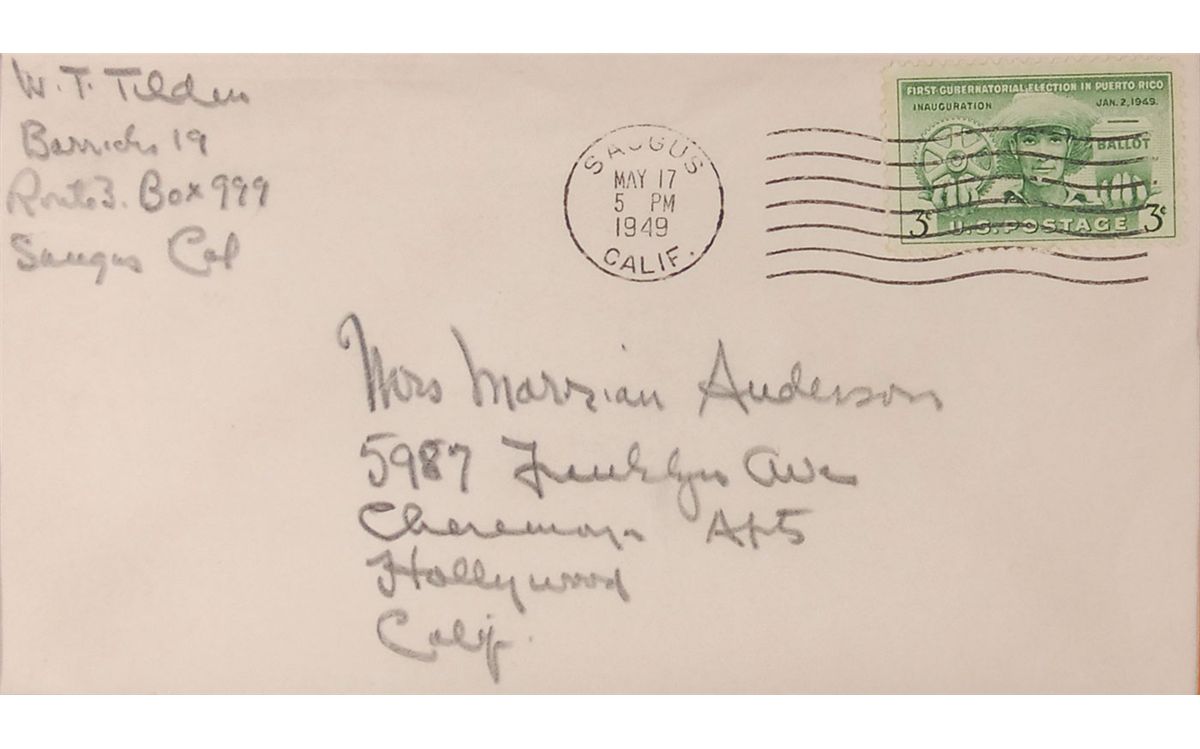 W. T. Tilden
Barricks 19
Route 3. Box 999
Saugus Cal
SAUGUS
MAY 17
5 PM
1949
CALIF.
FIRST GUBERNATORIAL ELECTION IN PUERTO RICO
INAUGURATION
JAN. 2, 1949.
BALLOT
3¢ U.S. POSTAGE 3¢
Mrs Marrian Anderson
5987 Franklyn Ave
Cheremoya Apt 5
Hollywood
Calif.